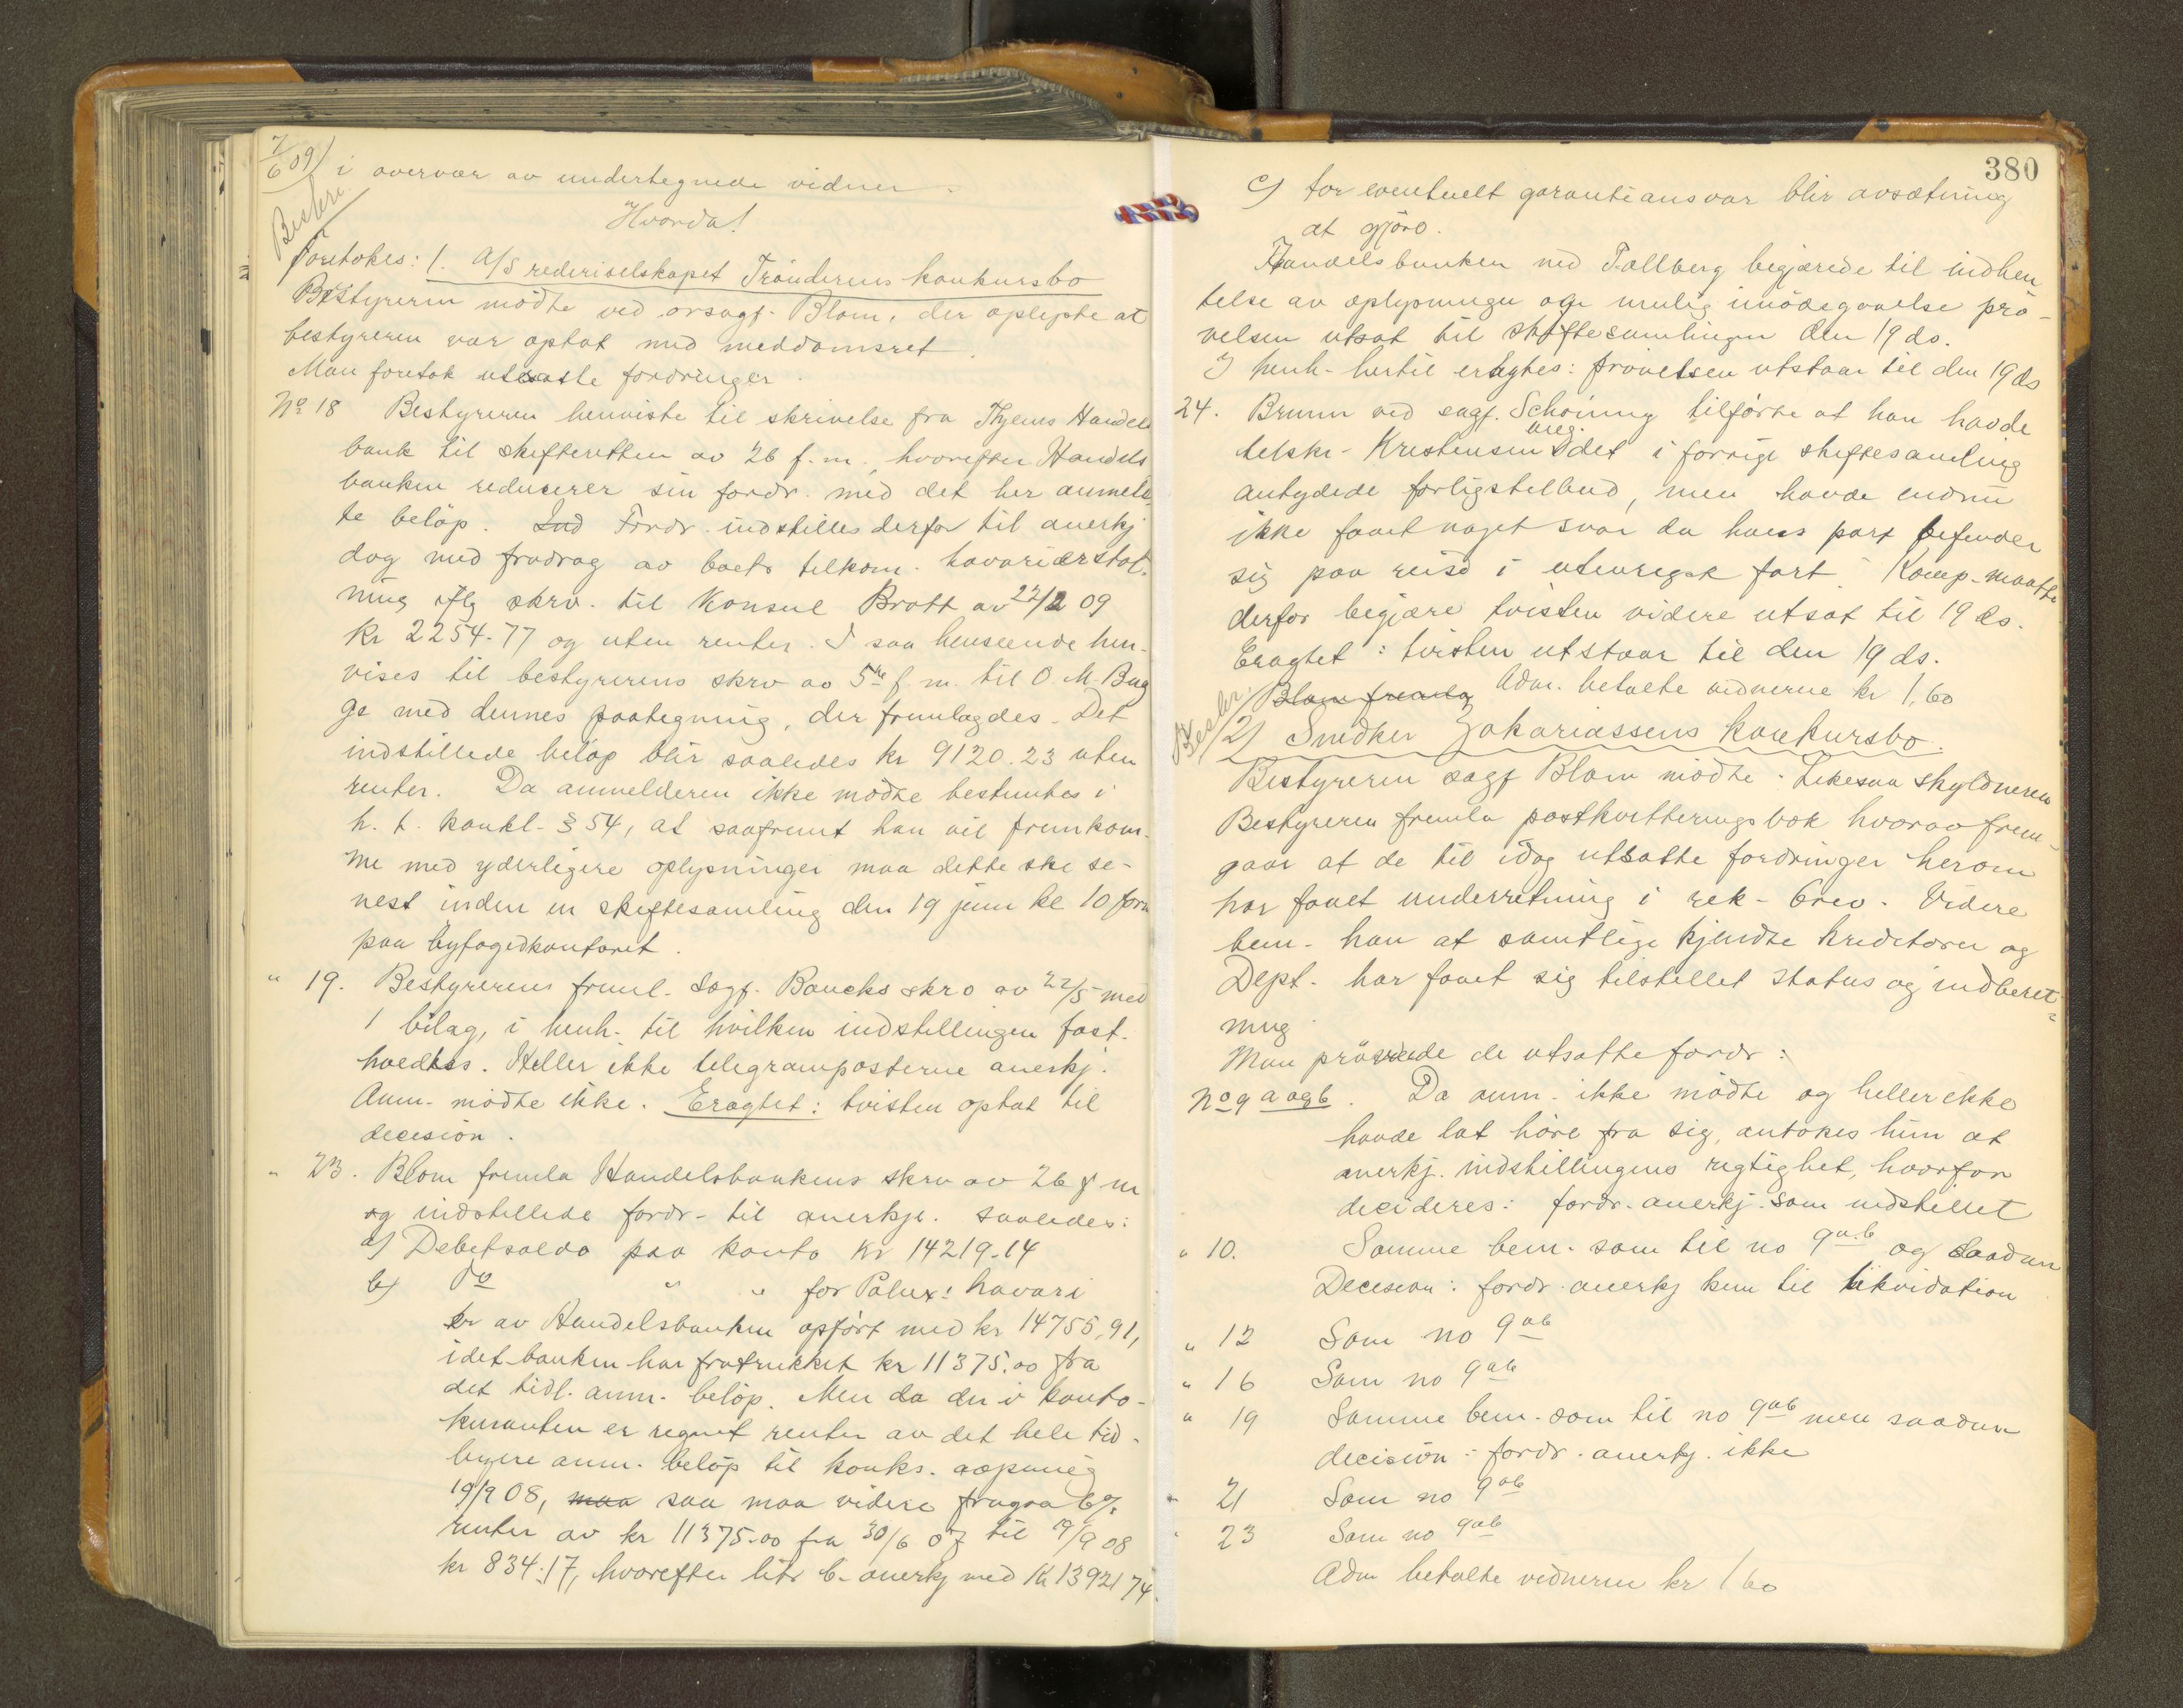 7/6 09) i overvær av undertegnede vidner.
Beskre.
Hvorda!
Foretokes: 1. A/S rederiselskapet Trönderens konkursbo
Bestyreren mödte ved orsagf. Blom, der oplyste at
bestyreren var optat med meddomsret.
Man foretok utsatte fordringer.
No 18 Bestyreren henviste til skrivelse fra Thjems Handels
bank til skifteretten av 26 f.m., hvorefter Handels
banken reducerer sin fordr. med det her anmeld
te belöp. Ind Fordr. indstilles derfor til anerkj
dog med fradrag av boets tilkom. havarierstat.
ning iflg skrv. til Konsul Bratt av 22/2 09
Kr 2254.77 og uten renter. I saa henseende hen-
vises til bestyrerens skrv av 5te f.m. til O. M. Bug
ge med dennes paategning, der fremlagdes. Det
indstillede belöp blir saaledes kr 9120.23 uten
renter. Da anmelderen ikke mödte bestemtes i
h. t. konkl. § 54, at saafremt han vil fremkom-
me med yderligere oplysninger maa dette ske se-
nest inden en skiftesamling den 19 juni kl 10 form
paa byfogedkontoret.
" 19. Bestyreren freml. Sagf. Baucks skrv av 22/5 med
1 bilag, i henh. til hvilken indstillingen fast-
holdtes. Heller ikke telegramposterne anerkj.
Anm. mödte ikke. Eragtet: tvisten optat til
decision.
" 23. Blom fremla Handelsbankens skrv av 26 f m
og indstillede fordr. til anerkje. saaledes:
a) Debetsaldo paa konto Kr 14219.14
b) do " " for Pollux: havari
er av Handelsbanken opfört med kr 14755,91,
idet banken har fratrukket kr 11375.00 fra
det tidl. anm. belöp. Men da der i konto-
kuranten er regnet renter av det hele tid-
ligere anm. belöp til konks. aapning
19/9 08, maa saa maa videre fragaa 6%
renter av kr 11375.00 fra 30/6 07 til 19/9 08
kr 834.17, hvorefter litr b. anerkj med Kr 13921 74.
380
c) for eventuelt garantiansvar blir avsætning
at gjöre.
Handelsbanken ved Tallberg begjærede til indhen
telse av oplysninger og mulig imödegaaelse prö-
velsen utsat til skiftesamlingen den 19 ds.
I henh. hertil eragtes: prövelsen utstaar til den 19 ds
24. Brunn ved sagf. Schöning tilförte at han havde
telskr. Kristensen ang. det i forrige skiftesamling
antydede forligstilbud, men havde endnu
ikke faaet noget svar da hans part befinder
sig paa reise i utenrigsk fart. Komp. maatte
derfor begjære tvisten videre utsat til 19 ds.
Eragtet: tvisten utstaar til den 19 ds.
Blom fremla Adm. betalte vidnerne kr 1,60
Beskr.
2) Snedker Zakariassens konkursbo.
Bestyreren sagf Blom mödte. Likesaa skyldneren
Bestyreren fremla postkvitteringsbok hvorav frem-
gaar at de til idag utsatte fordringer herom
har faaet underretning i rek. brev. Videre
bem. han at samtlige kjendte kreditorer og
Dept. har faaet sig tilstillet status og indberet-
ning.
Man prövede de utsatte fordr:
No 9 a og b. Da anm. ikke mödte og heller ikke
havde lat höre fra sig, antokes him at
anerkj. indstillingens rigtighet, hvorfor
decideres: fordr. anerkj. som indstillet
" 10. Samme bem. som til no 9 a b og saadan
Decision: fordr. anerkj kun til likvidation
" 12 Som no 9 ab
" 16 Som no 9 ab
" 19 Samme bem. som til no 9 ab men saadan
decision: fordr. anerkj. ikke
" 21 Som no 9 ab
" 23 Som no 9 ab
Adm betalte vidnerne kr 1 60